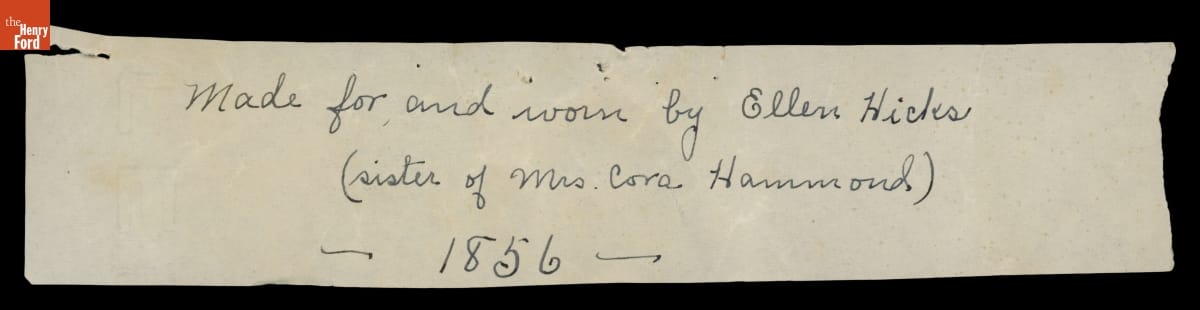 the
Henry
Ford
Made for, and worn by Ellen Hicks
(sister of Mrs. Cora Hammond)
— 1856 —